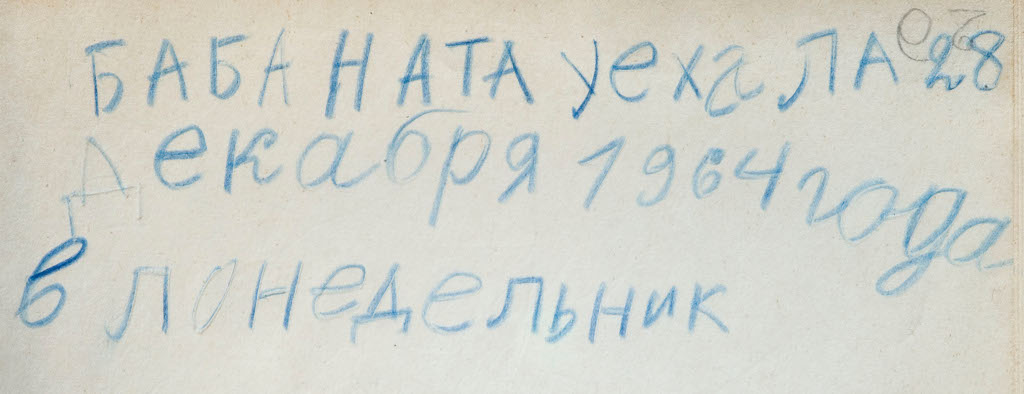 БАБА НАТА уехаЛА 28
декабря 1964 года
в понедельник